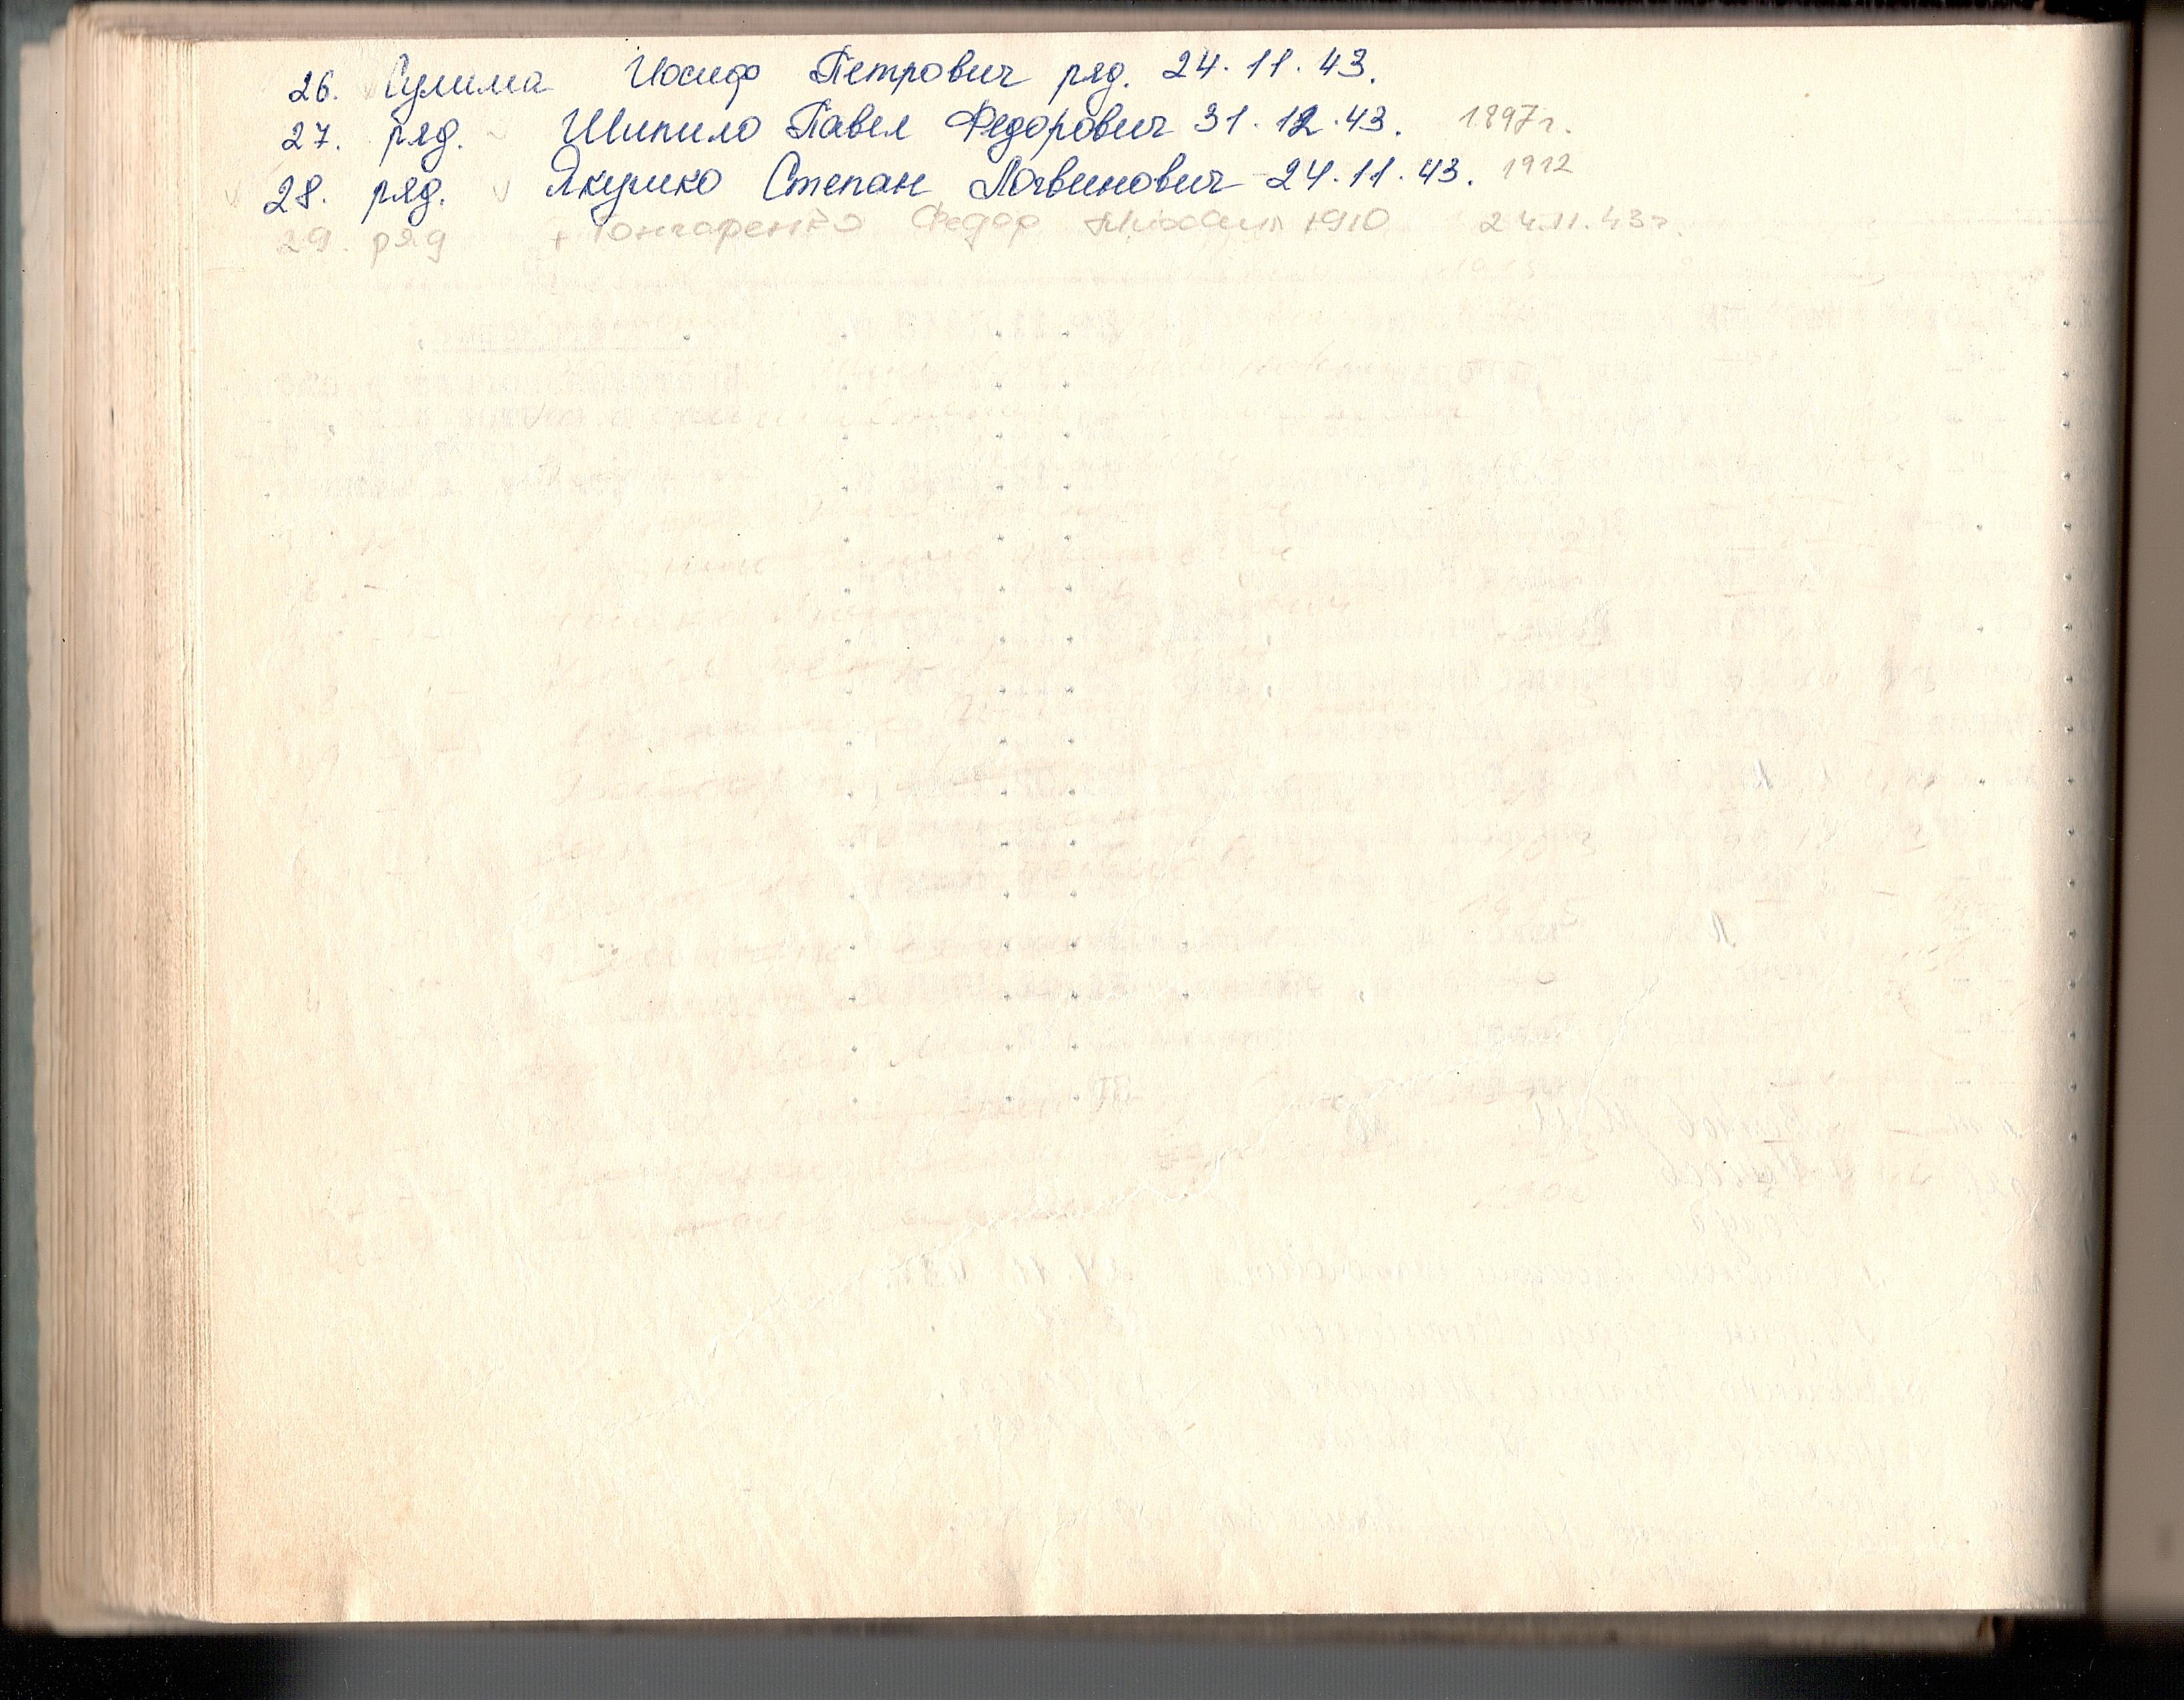 26. Сулима Иосиф Петрович ряд. 24.11.43.
27. ряд. Шипило Павел Федорович 31.12.43. 1897г.
28. ряд. Якушко Степан Логвинович 24.11.43. 1912
29. ряд + Гончаренко Федор 1910 24.11.43г.